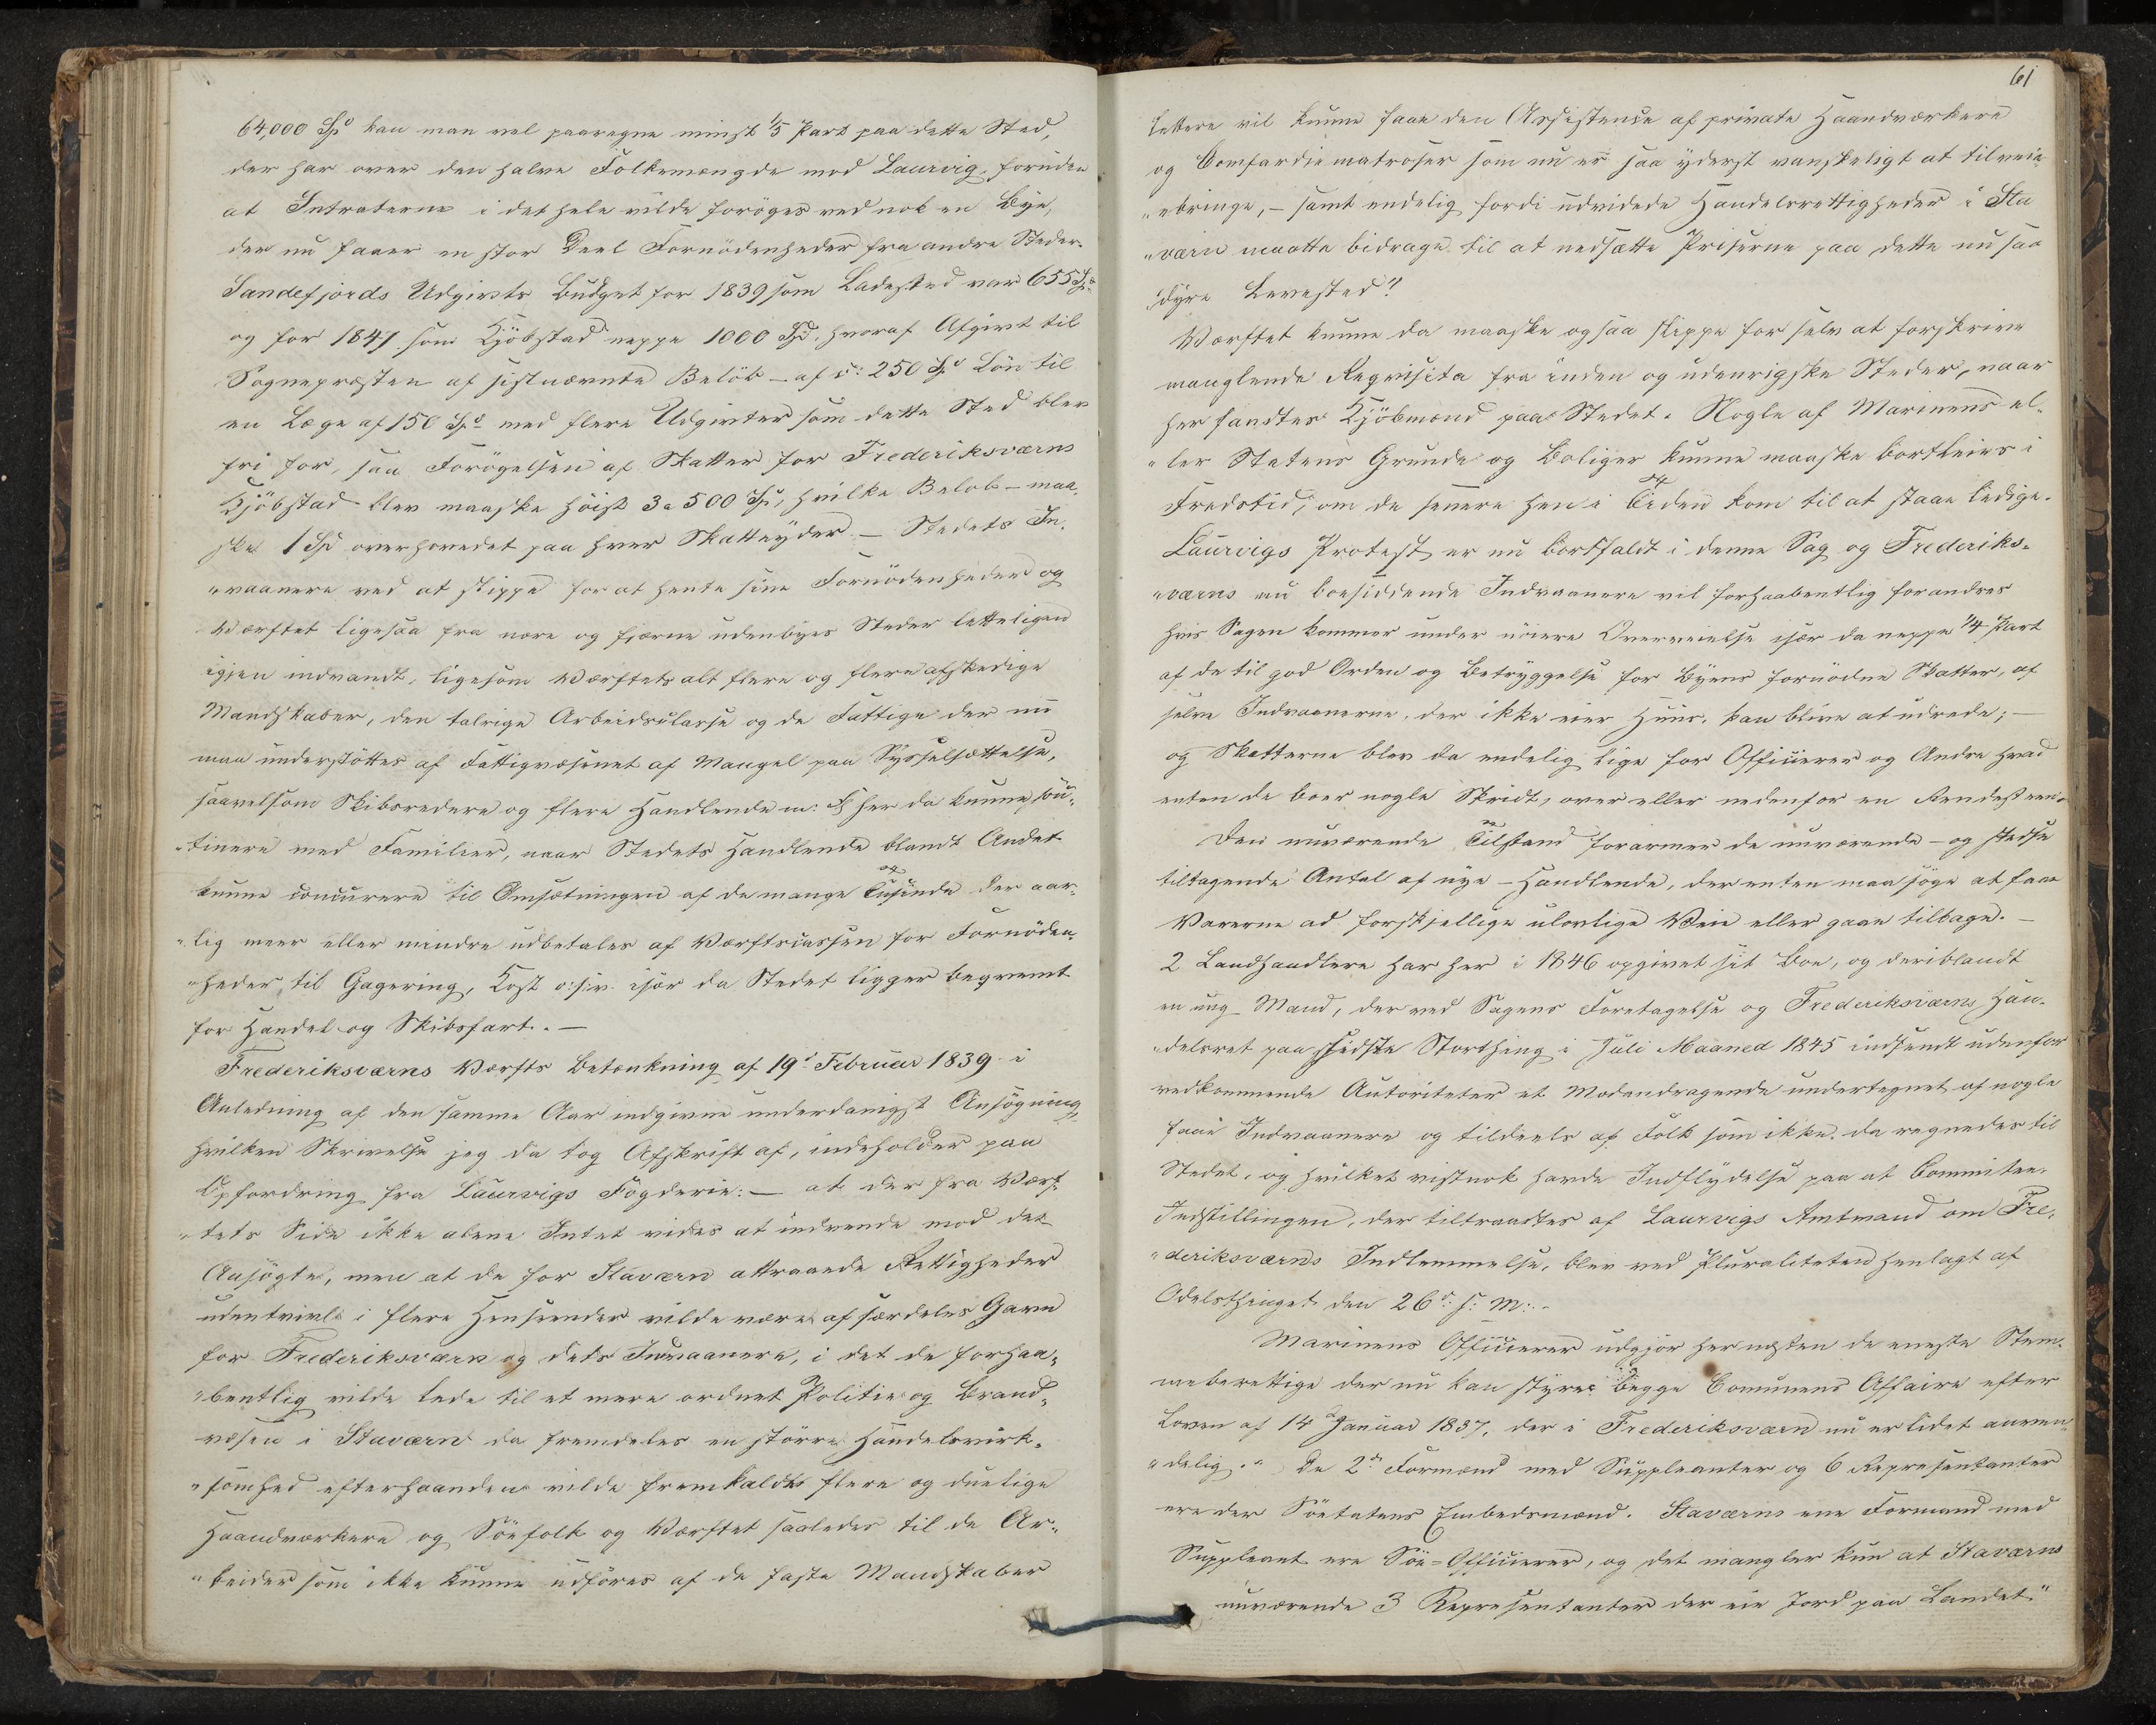 64,000 Spd kan man vel paaregne minst 1/5 Part paa dette Sted,
der har over den halve Folkemængde mod Laurvig, foruden
at Intraterne i det hele vilde forøges ved nok en Bye,
der nu faaer en stor Deel Fornödenheder fra andre Steder.
Sandefjords Udgivts Budget for 1839 som Ladested var 655 Spd
og for 1847 som Kjöbstad neppe 1000 Spd, hvoraf Afgivt til
Sognepræsten af sistnævnte Belöb – af c: 250 Spd Lön til
en Læge af 150 Spd med flere Udgivter som dette Sted blev
fri for, saa Forögelsen af Skatter for Frederiksværns
Kjöbstad blev maaske höist 3 a 500 Spd, hvilke Beløb – maa„
ske 1 Spd overhovedet paa hver Skatteyder – Stedets In„
„vaanere ved at slippe for at hente sine Fornödenheder og
Værftet ligesaa fra nære og fjærne udenbyes Steder letteligen
igjen indvandt, ligesom Værftets alt flere og flere afskedige
Mandskaber, den talrige Arbeidsclasse og de Fattige der nu
maa understöttes af Fattigvæsenet af Mangel paa Sysselsættelse,
saavelsom Skibsredere og flere Handlende m: fl her da kunne sou„
„tinere med Familier, naar Stedets Handlende blandt Andet
kunne concurere til Omsætningen af de mange Tusinde der aar„
„lig meer eller mindre udbetales af Værftscassen for Fornöden„
„heder, til Gagering, Kost o:s:v: især da Stedet ligger beqvemt
for Handel og Skibsfart. . –
Frederiksværns Værfts Betænkning af 19d Februar 1839 i
Anledning af den samme Aar indgivne underdanigst Ansögning,
hvilken Skrivelse jeg da tog Afskrift af, indeholder paa
Opfordring fra Laurvigs Fogderie: – at der fra Værf„
„tets Side ikke alene Intet vides at indvende mod det
Ansögte, men at de for Staværn attraaede Rettigheder
udentvivl i flere Henseender vilde være af særdeles Gavn
for Frederiksværn og dets Indvaanere, i det de forhaa„
„bentlig vilde lede til et mere ordnet Politie og Brand„
væsen i Staværn da fremdeles en större Handelsvirk„
„somhed efterhaanden vilde fremkaldes flere og duelige
Haandværkere og Söefolk og Værftet saaledes til de Ar„
„beider som ikke kunne udföres af de faste Mandskaber
61
lettere vil kunne faae den Assistence af private Haandværkere
og Comfardiematroser som nu er saa yderst vanskeligt at tilveie„
„ebringe, – samt endelig fordi udvidede Handelsrettigheder i Sta
„værn maatte bidrage til at nedsætte Priserne paa dette nu saa
„dyre Levested"
Værftet kunne da maaske ogsaa slippe for selv at forskrive
manglende Reqvisita fra inden og udenrigske Steder, naar
her fandtes Kjöbmænd paa Stedet. Nogle af Marinens el„
„ler Statens Grunde og Boliger kunne maaske bortleies i
Fredstid, om de senere hen i Tiden kom til at staae ledige.
Laurvigs Protest er nu bortfaldt i denne Sag og Frederiks„
„værns nu boesiddende Indvaanere vil forhaabentlig forandres
hvis Sagen kommer under nöiere Overveielse især da neppe 1/4 Part
af de til god Orden og Betryggelse for Byens fornødne Skatter, af
selve Indvaanerne, der ikke eier Huus, kan blive at udrede; –
og Skatterne blev da endelig lige for Officierer og Andre hvad
enten de boer nogle Skridt, over eller nedenfor en Rendesteen.
Den nuværende Tilstand forarmer de nuværende – og stedse
tiltagende Antal af nye – Handlende, der enten maa söge at faae
Varerne ad forskjellige ulovlige Veie eller gaae tilbage. –
2 Landhandlere har her i 1846 opgivet sit Boe, og deriblandt
en ung Mand, der ved Sagens Foretagelse og Frederiksværns Han„
„delsret paa sidste Storthing i Juli Maaned 1845 indsendt udenfor
vedkommende Autoriteter et Modandragende undertegnet af nogle
faae Indvaanere og tildeels af Folk som ikke da regnedes til
Stedet, og hvilket vistnok havde Indflydelse paa at Committee„
Indstillingen, der tiltraadtes af Laurvigs Amtmand om Fre„
„deriksværns Indlemmelse, blev ved Pluraliteten henlagt af
Odelsthinget den 26d: s: M: –
Marinens Officierer udgjør her næsten de eneste Stem„
meberettige der nu kan styre begge Comunens Affaire efter
Loven af 14d Januar 1837, der i Frederiksværn nu er lidet anven„
„delig." De 2de Formænd med Suppleanter og 6 Representanter
ere der Söetatens Embedsmænd. Staværns ene Formand med
Suppleant ere Söe-Officierer, og det mangler kun at Staværns
nuværende 3 Representanter der eie Jord paa Landet"